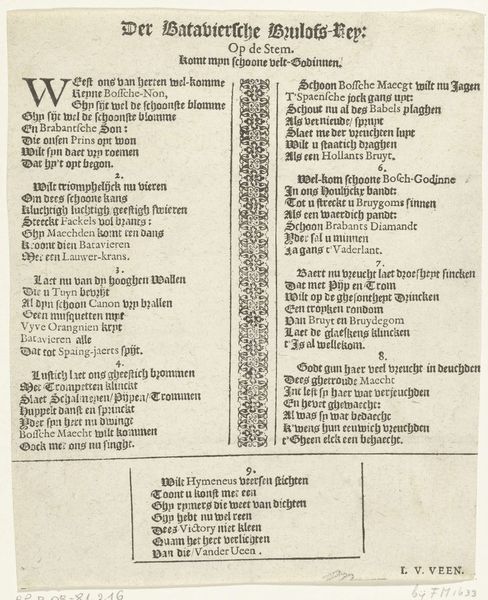 Der Bataviersche Bruilofs-Rey:
Op de Stem.
Komt myn schoone velt-Godinnen.
WEest ons van herten wel-komme
Reyne Bossche-Non,
Ghy sijt wel de schoonste blomme
Ghy sijt wel de schoonste blomme
En Brabantsche Son:
Die onsen Prins opt won
Wilt syn daet vry roemen
Dat hy't opt begon.
2.
Wilt triomphelijck nu vieren
Om dees schoone kans
Kluchtigh luchtigh geestigh swieren
Steeckt Fackels vol brants:
Ghy Maechden komt ten dans
Kroont dien Batavieren
Met een Lauwer-krans.
3.
Laet nu van dy hooghen Wallen
Die u Tuyn bevrijt
Al dyn schoon Canon vry brallen
Geen musquetten myt
Vyve Orangnien kryt
Batavieren alle
Dat tot Spaing-jaerts spijt.
4.
Lustich laet ons gheestich brommen
Met Trompetten klinckt
Slaet Schalmeyen/Pypen/Trommen
Huppelt danst en sprinckt
Yder syn hert nu dwinge
Bossche Maecht wilt kommen
Oock met ons nu singht.
Schoon Bossche Maecgt wilt nu Jagen
T'Spaensche jock gans uyt:
Schout nu al des Babels plaghen
Als vernieude/spruyt
Slaet me der vruchten luyt
Wilt u staatich draghen
Als een Hollants Bruyt.
6.
Wel-kom schoone Bosch-Godinne
In ons Houlijckx bandt:
Tot u streckt u Bruygoms sinnen
Als een waerdich pandt:
Schoon Brabants Diamandt
Yder sal u minnen
Ja gans t'Vaderlant.
7.
Baert nu vreucht laet droefheyt sincken
Dat met Pijp en Trom
Wilt op de ghesontheyt Drincken
Een troyken rondom
Van Bruyt en Bruydegom
Laet de glaeskens klincken
t'Is al wellekom.
8.
Godt gun haer veel vreucht in deuchden
Dees ghetroude Maecht
Int leet sy haer wat verjeuchden
En heeft ghewaecht:
Al was sy wat bedaecht
K'wens hun eeuwich vreuchden
t'Gheen elck een behaecht.
9.
Wilt Hymeneus veersen stichten
Toont u konst met een
Ghy rymers die weet van dichten
Ghy hebt nu wel reen
Dees Victory niet kleen
Quam het hert verlichten
Van die/Vander Veen.
I. V. VEEN.
RP.P.OB-81.216
bij FM 1633